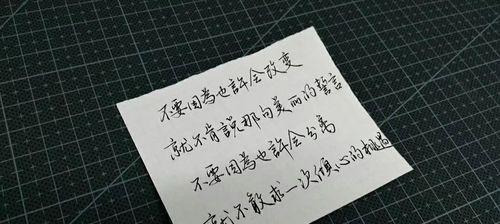 不要因為也許会改变
就不肯說那句美丽的誓言
不要因為也許会分离
就不敢求一次傾心的相遇